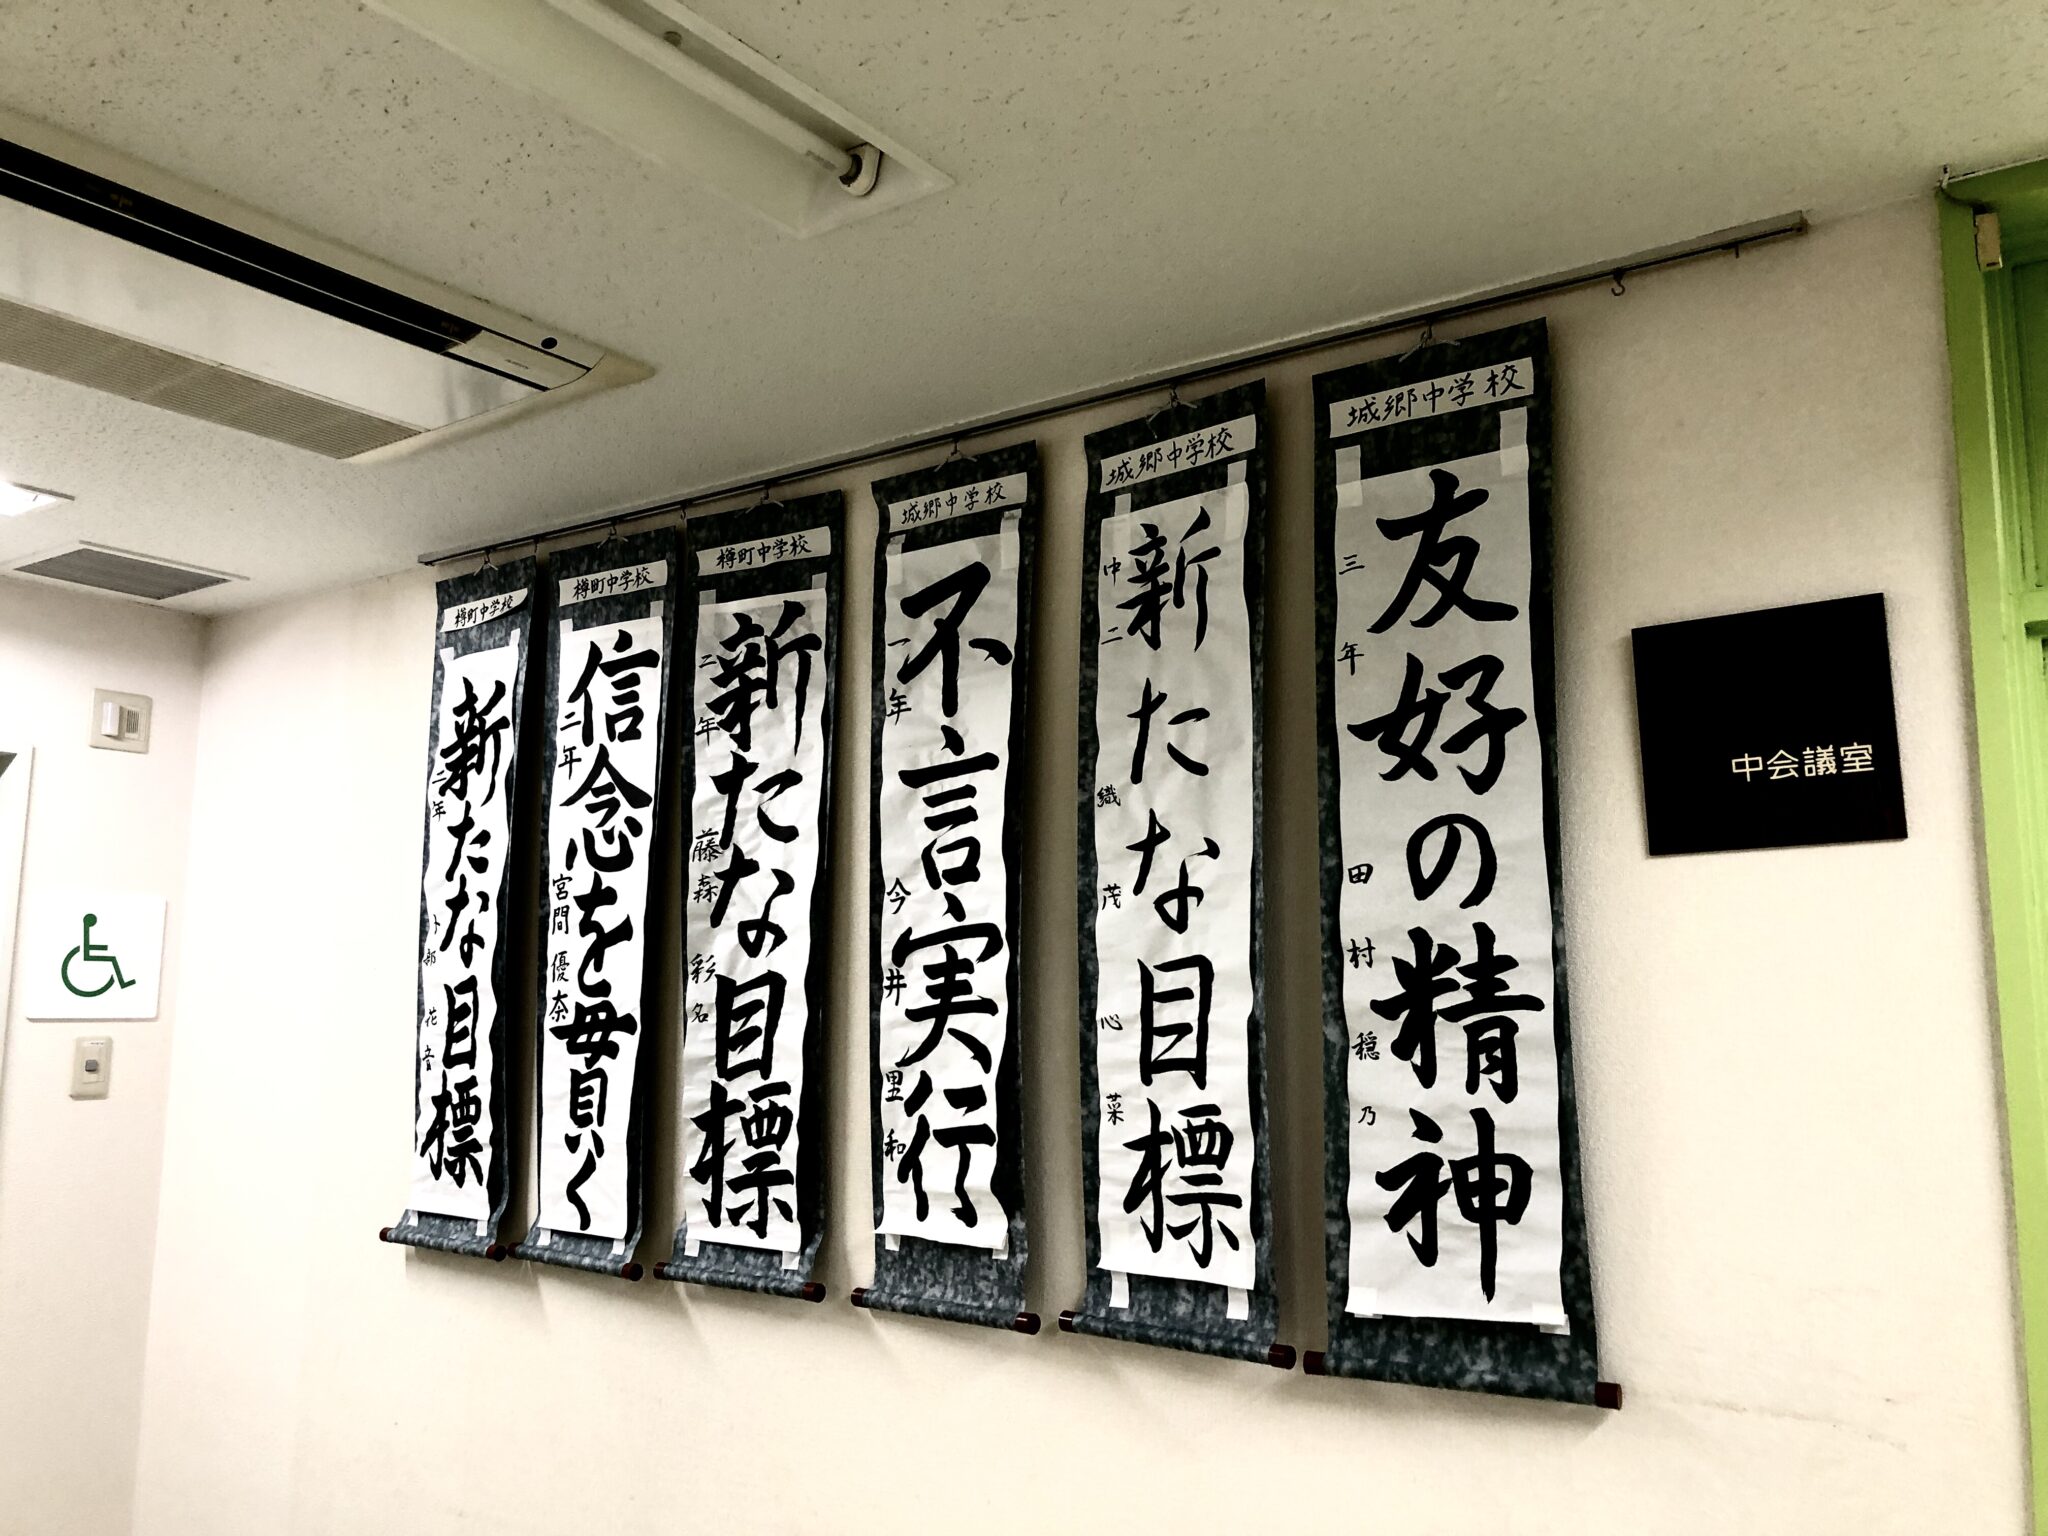 城郷中学校
友好の精神
三年 田村穏乃
城郷中学校
新たな目標
中二 織茂心菜
城郷中学校
不言実行
一年 今井里和
樽町中学校
新たな目標
二年 藤森彩名
樽町中学校
信念を貫く
二年 宮間優奈
樽町中学校
新たな目標
二年 卜部花音
中会議室